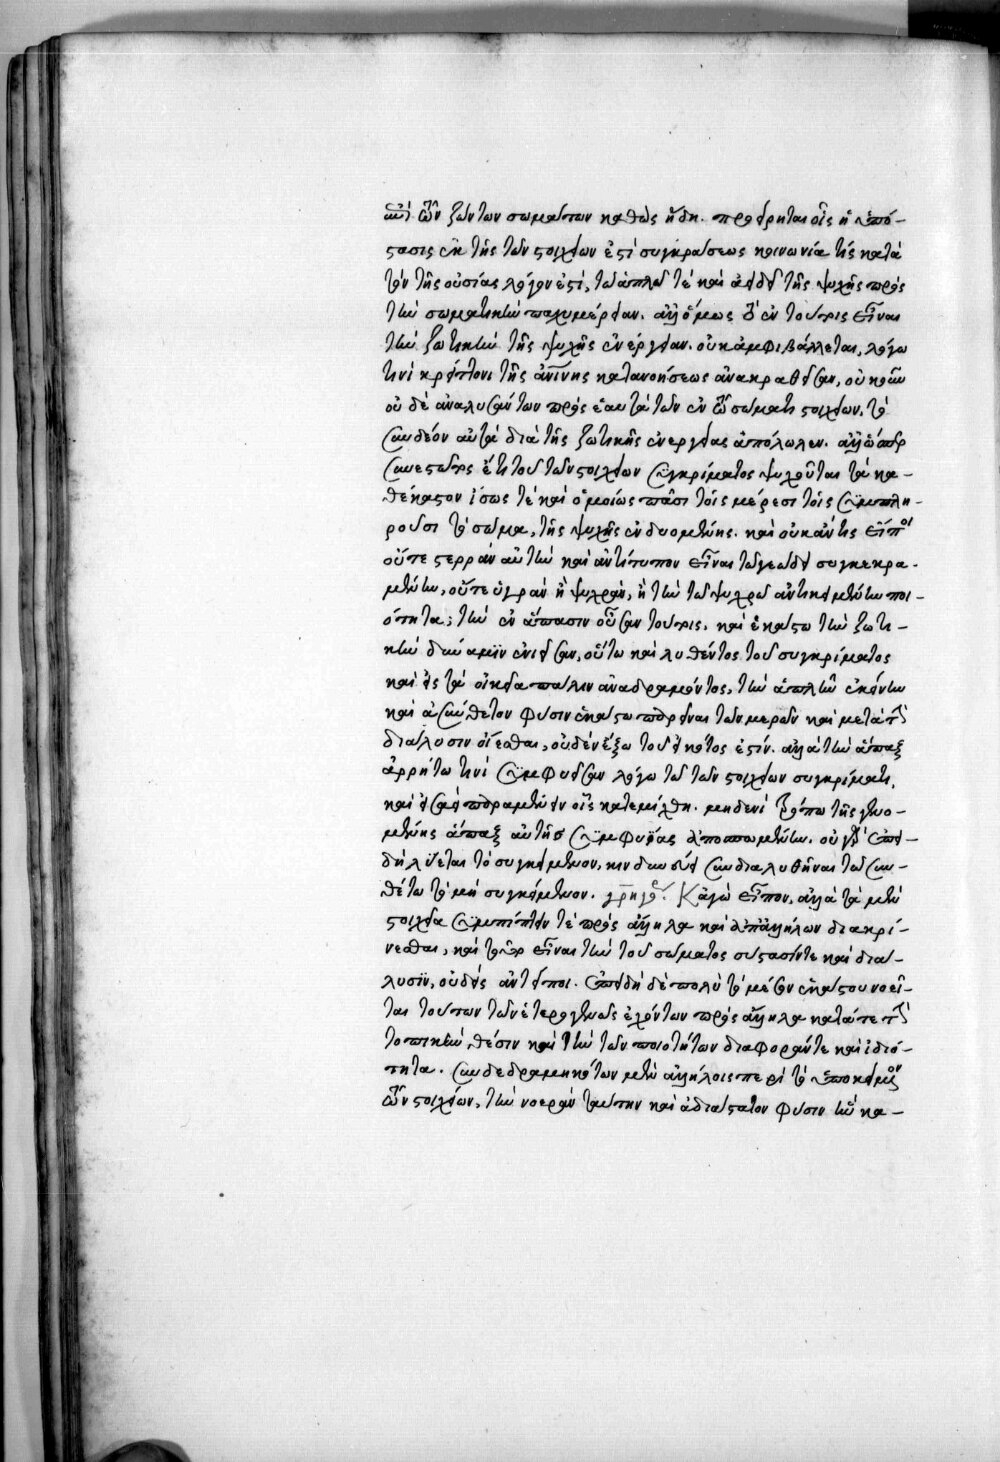 ἐπὶ τῶν ζώντων σωμάτων καθὼς ἤδη. προείρηται οἷς ἡ ὑπό-
στασις ἐκ τῆς τῶν στοιχείων ἐστὶ συγκράσεως κοινωνία τίς κατὰ
τὸν τῆς οὐσίας λόγον ἐστί, τῷ ἁπλῷ τὲ καὶ ἀειδεῖ τῆς ψυχῆς πρὸς
τὴν σωματικὴν παχυμέρειαν. ἀλλ' ὅμως τὸ ἐν τούτοις εἶναι
τὴν ζωτικὴν τῆς ψυχῆς ἐνέργειαν. οὐκ ἀμφιβάλλεται, λόγω
τινὶ κρείττονι τῆς ἀνίνης κατανοήσεως ἀνακραθεῖσαν, οὐκοῦν
οὐδὲ ἀναλυσάντων πρὸς ἑαυτὰ τῶν ἐν τῷ σώματι στοιχείων, τὸ
συνδέον αὐτὰ διὰ τῆς ζωτικῆς ἐνεργείας ἀπόλωλεν. ἀλλ' ὥσπερ
συνεστῶτος ἔτι τοῦ τῶν στοιχείων συγκρίματος ψυχοῦται τὰ κα-
θέκαστον ἴσως τὲ καὶ ὁμοίως πᾶσι τοῖς μέρεσι τοῖς συμπλη-
ροῦσι τὸ σῶμα, τῆς ψυχῆς ἐνδυομένης. καὶ οὐκ ἄν τις εἴποι
οὔτε στερρὰν αὐτὴν καὶ ἀντίτυπον εἶναι τῷ γεώδει συγκεκρα-
μένην, οὔτε ὑγρὰν ἢ ψυχρὰν, ἢ τὴν τῷ ψυχρῷ ἀντικειμένην ποι-
ότητα; τὴν ἐν ἅπασιν οὖσαν τούτοις, καὶ ἑκάστω τὴν ζωτι-
κὴν δύναμιν ἐνιεῖσαν, οὕτω καὶ λυθέντος τοῦ συγκρίματος
καὶ εἰς τὰ οἰκεῖα πάλιν ἀναδραμόντος, τὴν ἁπλῆν ἐκείνην
καὶ ἀσύνθετον φύσιν ἑκάστω παρεῖναι τῶν μερῶν καὶ μετὰ τὴν
διάλυσιν οἴεσθαι, οὐδὲν ἔξω τοῦ εἰκότος ἐστίν. ἀλλὰ τὴν ἅπαξ
ἀρρήτω τινὶ συμφυεῖσαν λόγω τῷ τῶν στοιχείων συγκρίματι,
καὶ εἰσαεὶ παραμένειν οἷς κατεμίχθη. μηδενὶ τρόπω τῆς γινο-
μένης ἅπαξ αὐτῆς συμφυΐας ἀποσπωμένην. οὐ γὰρ ἐπει-
δὴ λύεται τὸ συγκείμενον, κινδυνεύει συνδιαλυθῆναι τῷ συν-
θέτω τὸ μὴ συγκείμενον. γρηγο. Κἀγὼ εἶπον, ἀλλὰ τὰ μὲν
στοιχεῖα συμπίπτειν τὲ πρὸς ἄλληλα καὶ ἀπ' ἀλλήλων διακρί-
νεσθαι, καὶ τοῦτο εἶναι τὴν τοῦ σώματος σύστασίν τε καὶ διά-
λυσιν, οὐδεὶς ἀντείποι. ἐπειδὴ δὲ πολὺ τὸ μέσον ἑκάστου νοεῖ-
ται τούτων τῶν ἑτερογενῶς ἐχόντων πρὸς ἄλληλα κατά τε τὴν
τοπικὴν θέσιν καὶ τὴν τῶν ποιοτήτων διαφοράν τε καὶ ἰδιό-
τητα. συνδεδραμηκότων μὲν ἀλλήλοις περὶ τὸ ὑποκείμενον
τῶν στοιχείων, τὴν νοερὰν ταύτην καὶ ἀδιάστατον φύσιν ἣν κα-